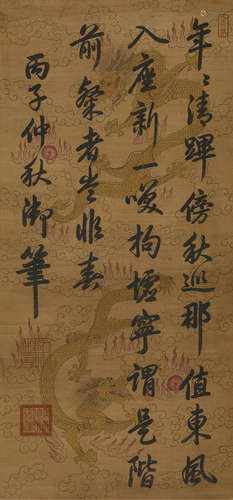 年〻清蹕傍秋巡那值東風
入座新一噗拘墟寧謂是階
前粲者豈非春
丙子仲秋御筆